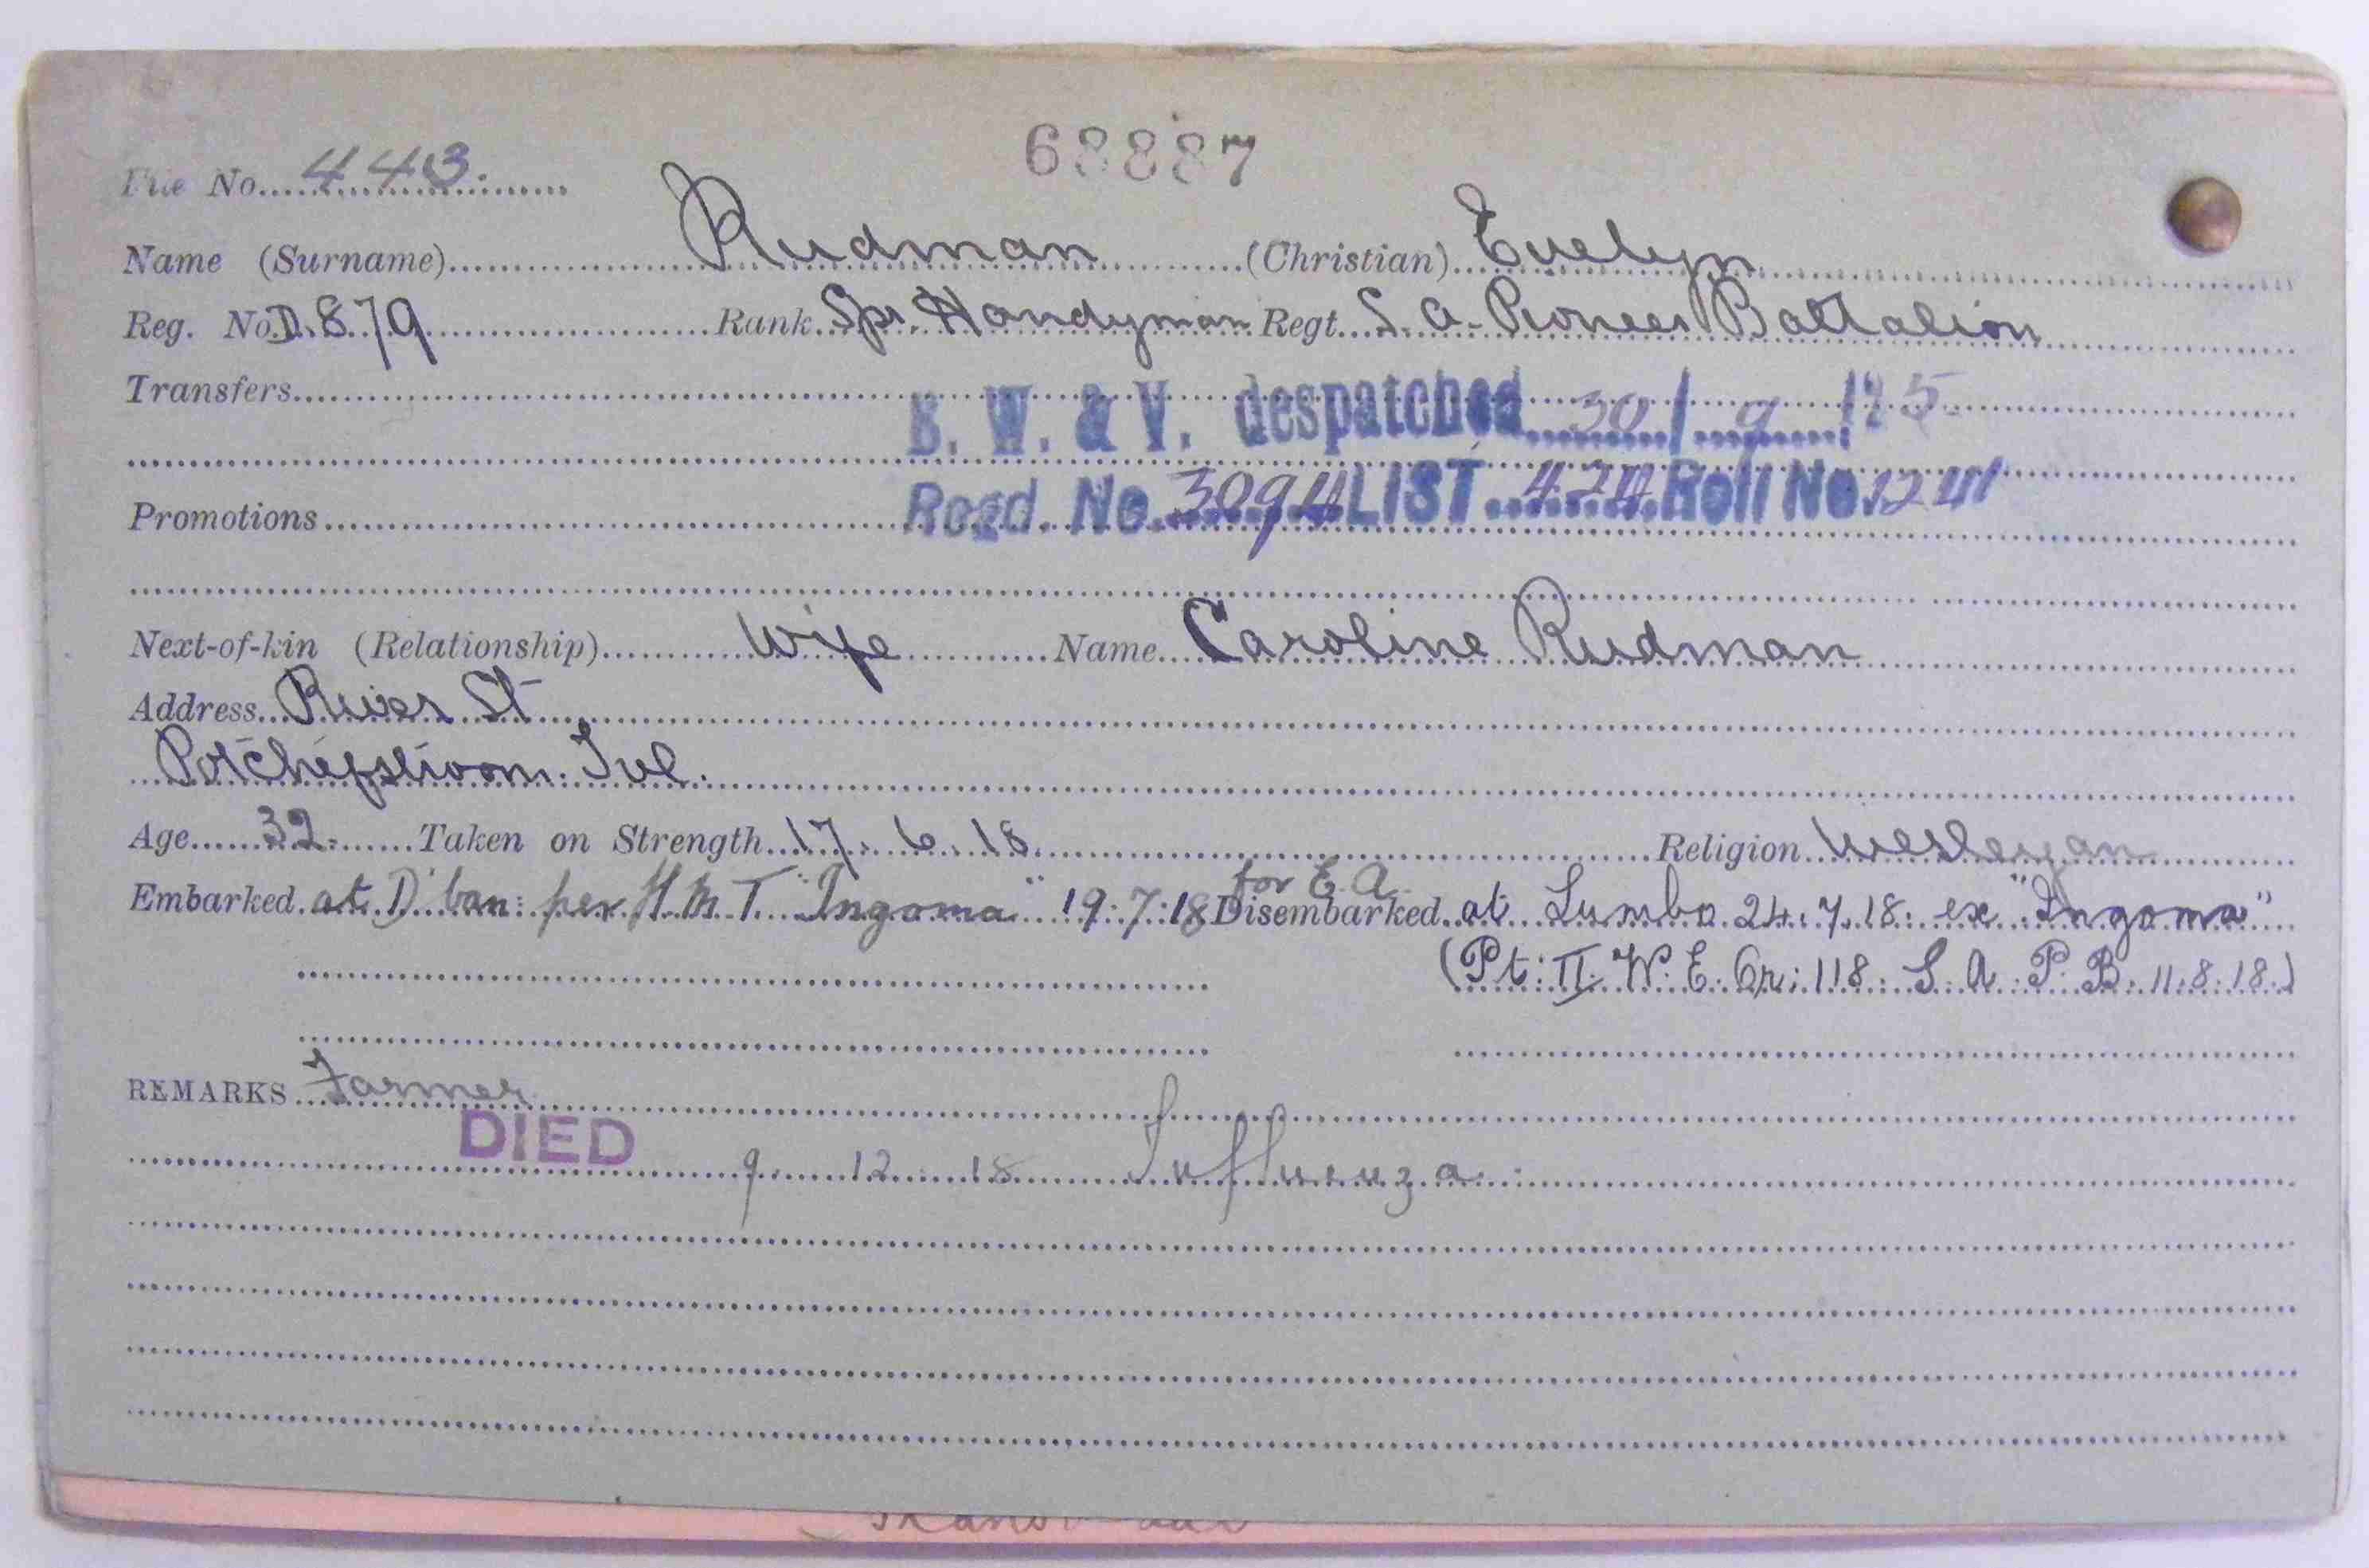 68887
File No. 443.
Name (Surname) Rudman (Christian) Evelyn
Reg. No. D.879 Rank Spr. Handyman Regt. S. A. Pioneer Battalion
Transfers
B. W. & V. despatched 30/9/25.
Promotions
Regd. No. 3094 LIST 424 Roll No. 1241
Next-of-kin (Relationship) Wife Name Caroline Rudman
Address River St
Potchefstroom. Tvl.
Age 32. Taken on Strength 17. 6. 18. Religion Wesleyan
for E. A.
Embarked at D'ban: per H. M. T. "Ingoma" 19:7:18 Disembarked at Lumbo 24.7.18. ex "Ingoma"
(Pt: II W. E. Or: 118. S. A. P. B. 11.8.18.)
REMARKS Farmer
DIED 9 12 18 Influenza